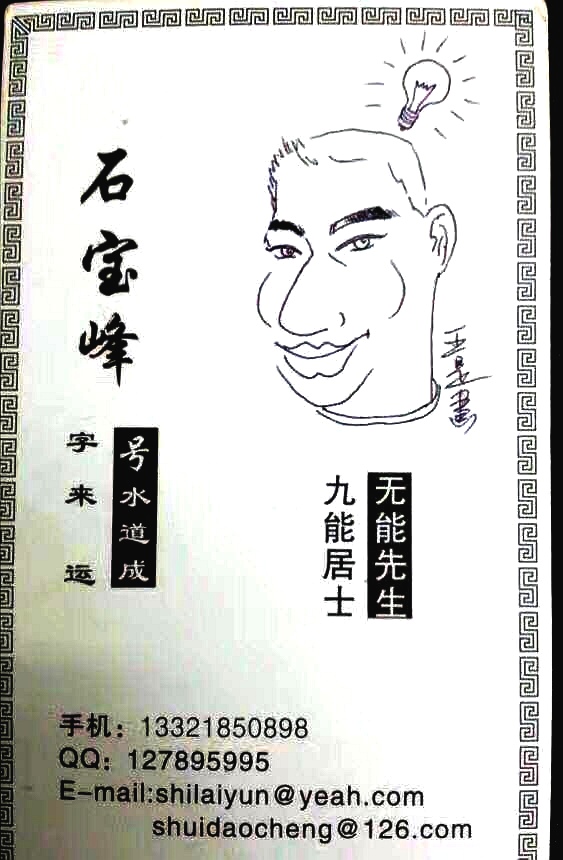 石宝峰
字来运
号水道成
无能先生
九能居士
王是画
手机：13321850898
QQ：127895995
E-mail:shilaiyun@yeah.com
shuidaocheng@126.com